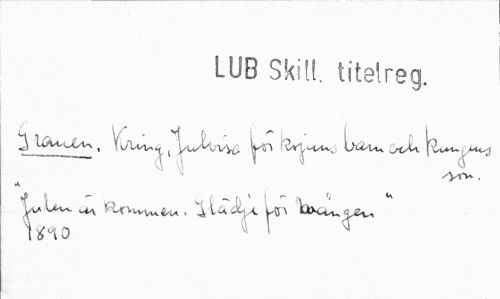 LUB Skill. titelreg.
Granen. Kring, Julvisa för kojans barn och kungens
son.
"Julen är kommen. Glädje för mången"
1890